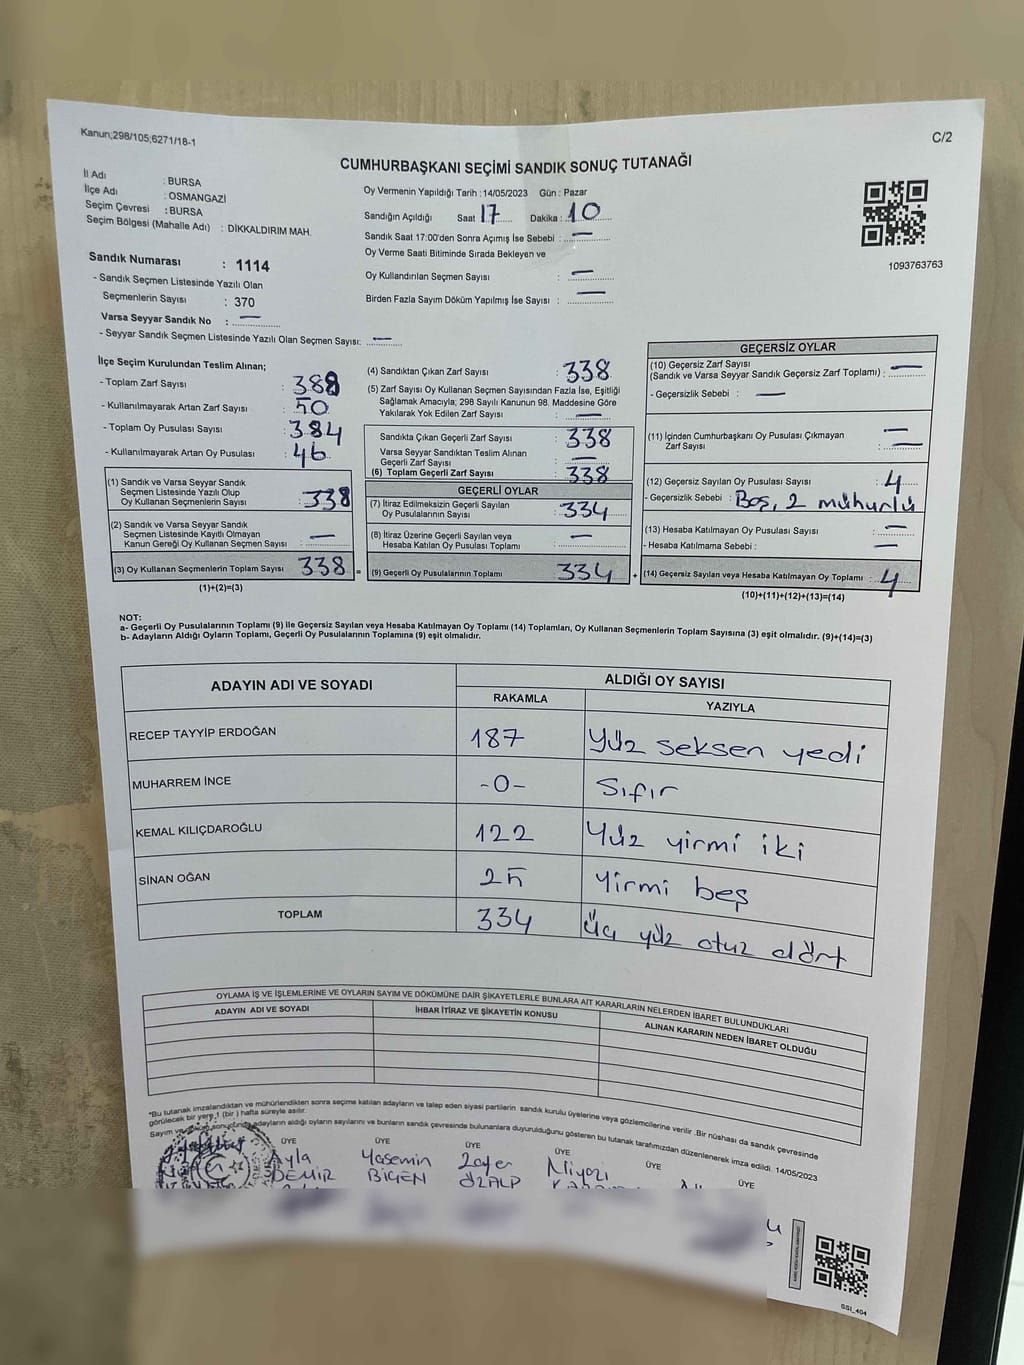 Kanun;298/105;6271/18-1
C/2
CUMHURBAŞKANI SEÇİMİ SANDIK SONUÇ TUTANAĞI
İl Adı : BURSA
İlçe Adı : OSMANGAZİ
Seçim Çevresi : BURSA
Seçim Bölgesi (Mahalle Adı) : DİKKALDIRIM MAH.
Oy Vermenin Yapıldığı Tarih : 14/05/2023 Gün : Pazar
Sandığın Açıldığı Saat 17 Dakika : 10
Sandık Saat 17:00'den Sonra Açımış İse Sebebi : —
Oy Verme Saati Bitiminde Sırada Bekleyen ve
Oy Kullandırılan Seçmen Sayısı : —
Birden Fazla Sayım Döküm Yapılmış İse Sayısı : —
1093763763
Sandık Numarası : 1114
- Sandık Seçmen Listesinde Yazılı Olan
Seçmenlerin Sayısı : 370
Varsa Seyyar Sandık No : —
- Seyyar Sandık Seçmen Listesinde Yazılı Olan Seçmen Sayısı: —
İlçe Seçim Kurulundan Teslim Alınan;
- Toplam Zarf Sayısı : 388
- Kullanılmayarak Artan Zarf Sayısı : 50
- Toplam Oy Pusulası Sayısı : 384
- Kullanılmayarak Artan Oy Pusulası : 46
(1) Sandık ve Varsa Seyyar Sandık
Seçmen Listesinde Yazılı Olup
Oy Kullanan Seçmenlerin Sayısı : 338
(2) Sandık ve Varsa Seyyar Sandık
Seçmen Listesinde Kayıtlı Olmayan
Kanun Gereği Oy Kullanan Seçmen Sayısı : —
(3) Oy Kullanan Seçmenlerin Toplam Sayısı : 338
(1)+(2)=(3)
(4) Sandıktan Çıkan Zarf Sayısı : 338
(5) Zarf Sayısı Oy Kullanan Seçmen Sayısından Fazla İse, Eşitliği
Sağlamak Amacıyla; 298 Sayılı Kanunun 98. Maddesine Göre
Yakılarak Yok Edilen Zarf Sayısı : —
Sandıkta Çıkan Geçerli Zarf Sayısı : 338
Varsa Seyyar Sandıktan Teslim Alınan
Geçerli Zarf Sayısı : —
(6) Toplam Geçerli Zarf Sayısı : 338
GEÇERLİ OYLAR
(7) İtiraz Edilmeksizin Geçerli Sayılan
Oy Pusulalarının Sayısı : 334
(8) İtiraz Üzerine Geçerli Sayılan veya
Hesaba Katılan Oy Pusulası Toplamı : —
= (9) Geçerli Oy Pusulalarının Toplamı 334
GEÇERSİZ OYLAR
(10) Geçersiz Zarf Sayısı
(Sandık ve Varsa Seyyar Sandık Geçersiz Zarf Toplamı) : —
- Geçersizlik Sebebi : —
(11) İçinden Cumhurbaşkanı Oy Pusulası Çıkmayan : —
Zarf Sayısı : —
(12) Geçersiz Sayılan Oy Pusulası Sayısı : 4
- Geçersizlik Sebebi : Boş, 2 mühürlü
(13) Hesaba Katılmayan Oy Pusulası Sayısı : —
- Hesaba Katılmama Sebebi : —
+ (14) Geçersiz Sayılan veya Hesaba Katılmayan Oy Toplamı : 4
(10)+(11)+(12)+(13)=(14)
NOT:
a- Geçerli Oy Pusulasının Toplamı (9) ile Geçersiz Sayılan veya Hesaba Katılmayan Oy Toplamı (14) Toplamları, Oy Kullanan Seçmenlerin Toplam Sayısına (3) eşit olmalıdır. (9)+(14)=(3)
b- Adayların Aldığı Oyların Toplamı, Geçerli Oy Pusulalarının Toplamına (9) eşit olmalıdır.
ADAYIN ADI VE SOYADI
ALDIĞI OY SAYISI
RAKAMLA YAZIYLA
RECEP TAYYİP ERDOĞAN 187 Yüz seksen yedi
MUHARREM İNCE -0- Sıfır
KEMAL KILIÇDAROĞLU 122 Yüz yirmi iki
SİNAN OĞAN 25 Yirmi beş
TOPLAM 334 üç yüz otuz dört
OYLAMA İŞ VE İŞLEMLERİNE VE OYLARIN SAYIM VE DÖKÜMÜNE DAİR ŞİKAYETLERLE BUNLARA AİT KARARLARIN NELERDEN İBARET BULUNDUKLARI
ADAYIN ADI VE SOYADI İHBAR İTİRAZ VE ŞİKAYETİN KONUSU ALINAN KARARIN NEDEN İBARET OLDUĞU
*Bu tutanak imzalandıktan ve mühürlendikten sonra seçime katılan adayların ve talep eden siyasi partilerin sandık kurulu üyelerine veya gözlemcilerine verilir .Bir nüshası da sandık çevresinde
görülecek bir yere 1 (bir ) hafta süreyle asılır.
Sayım ve sonucunda adayların aldığı oyların sayılarını ve bunların sandık çevresinde bulunanlara duyurulduğunu gösteren bu tutanak tarafımızdan düzenlenerek imza edildi. 14/05/2023
ÜYE ÜYE ÜYE ÜYE ÜYE ÜYE
Ayla Yasemin Zafer Niyazi
DEMİR BİGEN ÖZALP
SSI_404